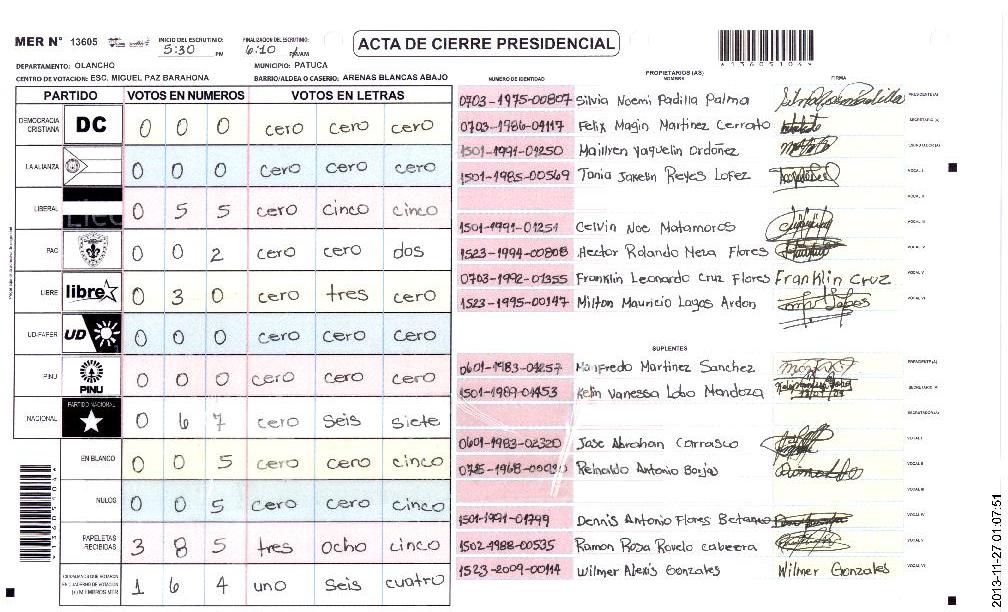 MER N° 13605
INICIO DEL ESCRUTINIO: 5:30 PM
FINALIZACION DEL ESCRUTINIO: 6:10 PM/AM
ACTA DE CIERRE PRESIDENCIAL
*13605104*
DEPARTAMENTO: OLANCHO
MUNICIPIO: PATUCA
CENTRO DE VOTACION: ESC. MIGUEL PAZ BARAHONA
BARRIO/ALDEA O CASERIO: ARENAS BLANCAS ABAJO
PARTIDO VOTOS EN NUMEROS VOTOS EN LETRAS
DEMOCRACIA CRISTIANA DC 0 0 0 cero cero cero
LA ALIANZA 0 0 0 cero cero cero
LIBERAL 0 5 5 cero cinco cinco
PAC 0 0 2 cero cero dos
LIBRE libre 0 3 0 cero tres cero
UD-FAPER UD 0 0 0 cero cero cero
PINU PINU 0 0 0 cero cero cero
NACIONAL PARTIDO NACIONAL 0 6 7 cero seis siete
EN BLANCO 0 0 5 cero cero cinco
NULOS 0 0 5 cero cero cinco
PAPELETAS RECIBIDAS 3 8 5 tres ocho cinco
CIUDADANOS QUE VOTARON EN CUADERNO DE VOTACION (+) MIEMBROS MER 1 6 4 uno seis cuatro
PROPIETARIOS (AS)
NUMERO DE IDENTIDAD NOMBRE FIRMA
0703-1975-00807 Silvia Noemi Padilla Palma PRESIDENTE (A)
0703-1986-04117 Felix Magin Martinez Cerrato SECRETARIO (A)
1501-1991-01250 Maillren Yaquelin Ordoñez ESCRUTADOR (A)
1501-1985-00569 Tania Jakelin Reyes Lopez VOCAL I
VOCAL II
1501-1991-01251 Celvin Noe Matamoros VOCAL III
1523-1994-00808 Hector Rolando Meza Flores VOCAL IV
0703-1992-01355 Franklin Leonardo Cruz Flores Franklin Cruz VOCAL V
1523-1995-00147 Milton Mauricio Lagos Ardon VOCAL VI
SUPLENTES
0601-1983-04257 Manfredo Martinez Sanchez PRESIDENTE (A)
1501-1989-01453 Kelin Vanessa Lobo Mendoza SECRETARIO (A)
ESCRUTADOR (A)
0601-1983-02320 Jose Abrahan Carrasco VOCAL I
Reinaldo Antonio Borjas VOCAL II
VOCAL III
1501-1991-01799 Dennis Antonio Flores Betanco VOCAL IV
1502-1988-00535 Ramon Rosa Rovelo cabrera VOCAL V
1523-2009-00114 Wilmer Alexis Gonzales Wilmer Gonzales VOCAL VI
*13605104*
2013-11-27 01:07:51